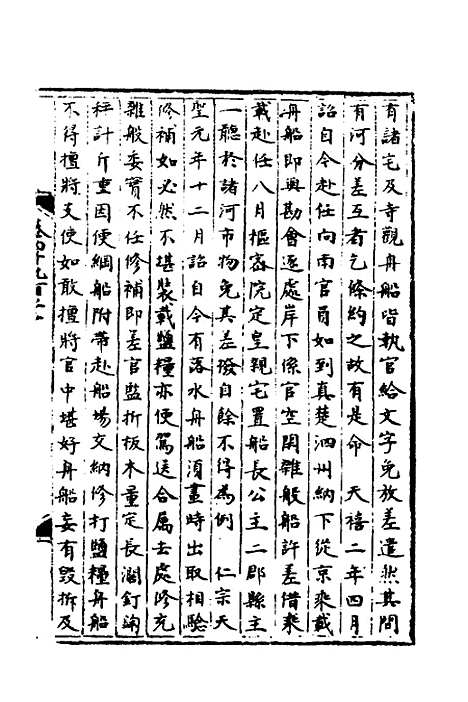 有諸宅及寺觀舟船皆執官給文字免放差遣然其間
有河分差互者乞條約之故有是命　天禧二年四月
詔自今赴任向南官員如到真楚泗州納下從京乘載
舟船即與勘會逐處岸下係官空閑雜般船許差借乘
載赴任八月樞密院定皇親宅置船長公主二郡縣主
一聽於諸河市物免其差撥自餘不得為例　仁宗天
聖元年十二月詔自今有落水舟船須畫時出取相驗
修補如必然不堪裝載鹽糧亦便駕送合屬去處修充
雜般委實不任修補即差官監拆板木量定長闊釘鍋
秤計斤重因便綱船附帶赴船場交納修打鹽糧舟船
不得擅將支使如敢擅將官中堪好舟船妄有毀拆及